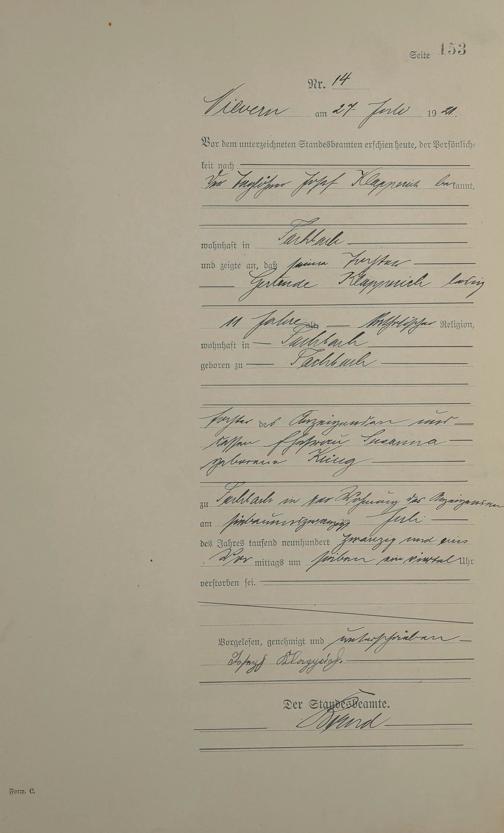 Seite 153
Nr. 14
am 27 Juli 1921.
Vor dem unterzeichneten Standesbeamten erschien heute, der Persönlich-
keit nach
der Taglöhner Josef Klapperich bekannt,
wohnhaft in Fachbach
und zeigte an, daß seine Tochter
Gertrude Klapperich ledig
11 Jahre alt katholischer Religion,
wohnhaft in Fachbach
geboren zu Fachbach
Tochter des Anzeigenden und
dessen Ehefrau Susanna
geborene
zu Fachbach in der Wohnung des Anzeigenden
am siebenundzwanzig Juli
des Jahres tausend neunhundert zwanzig und eins
Vor mittags um sieben ein viertel Uhr
verstorben sei.
Vorgelesen, genehmigt und unterschrieben
Josef Klapperich.
Der Standesbeamte.
Form. C.